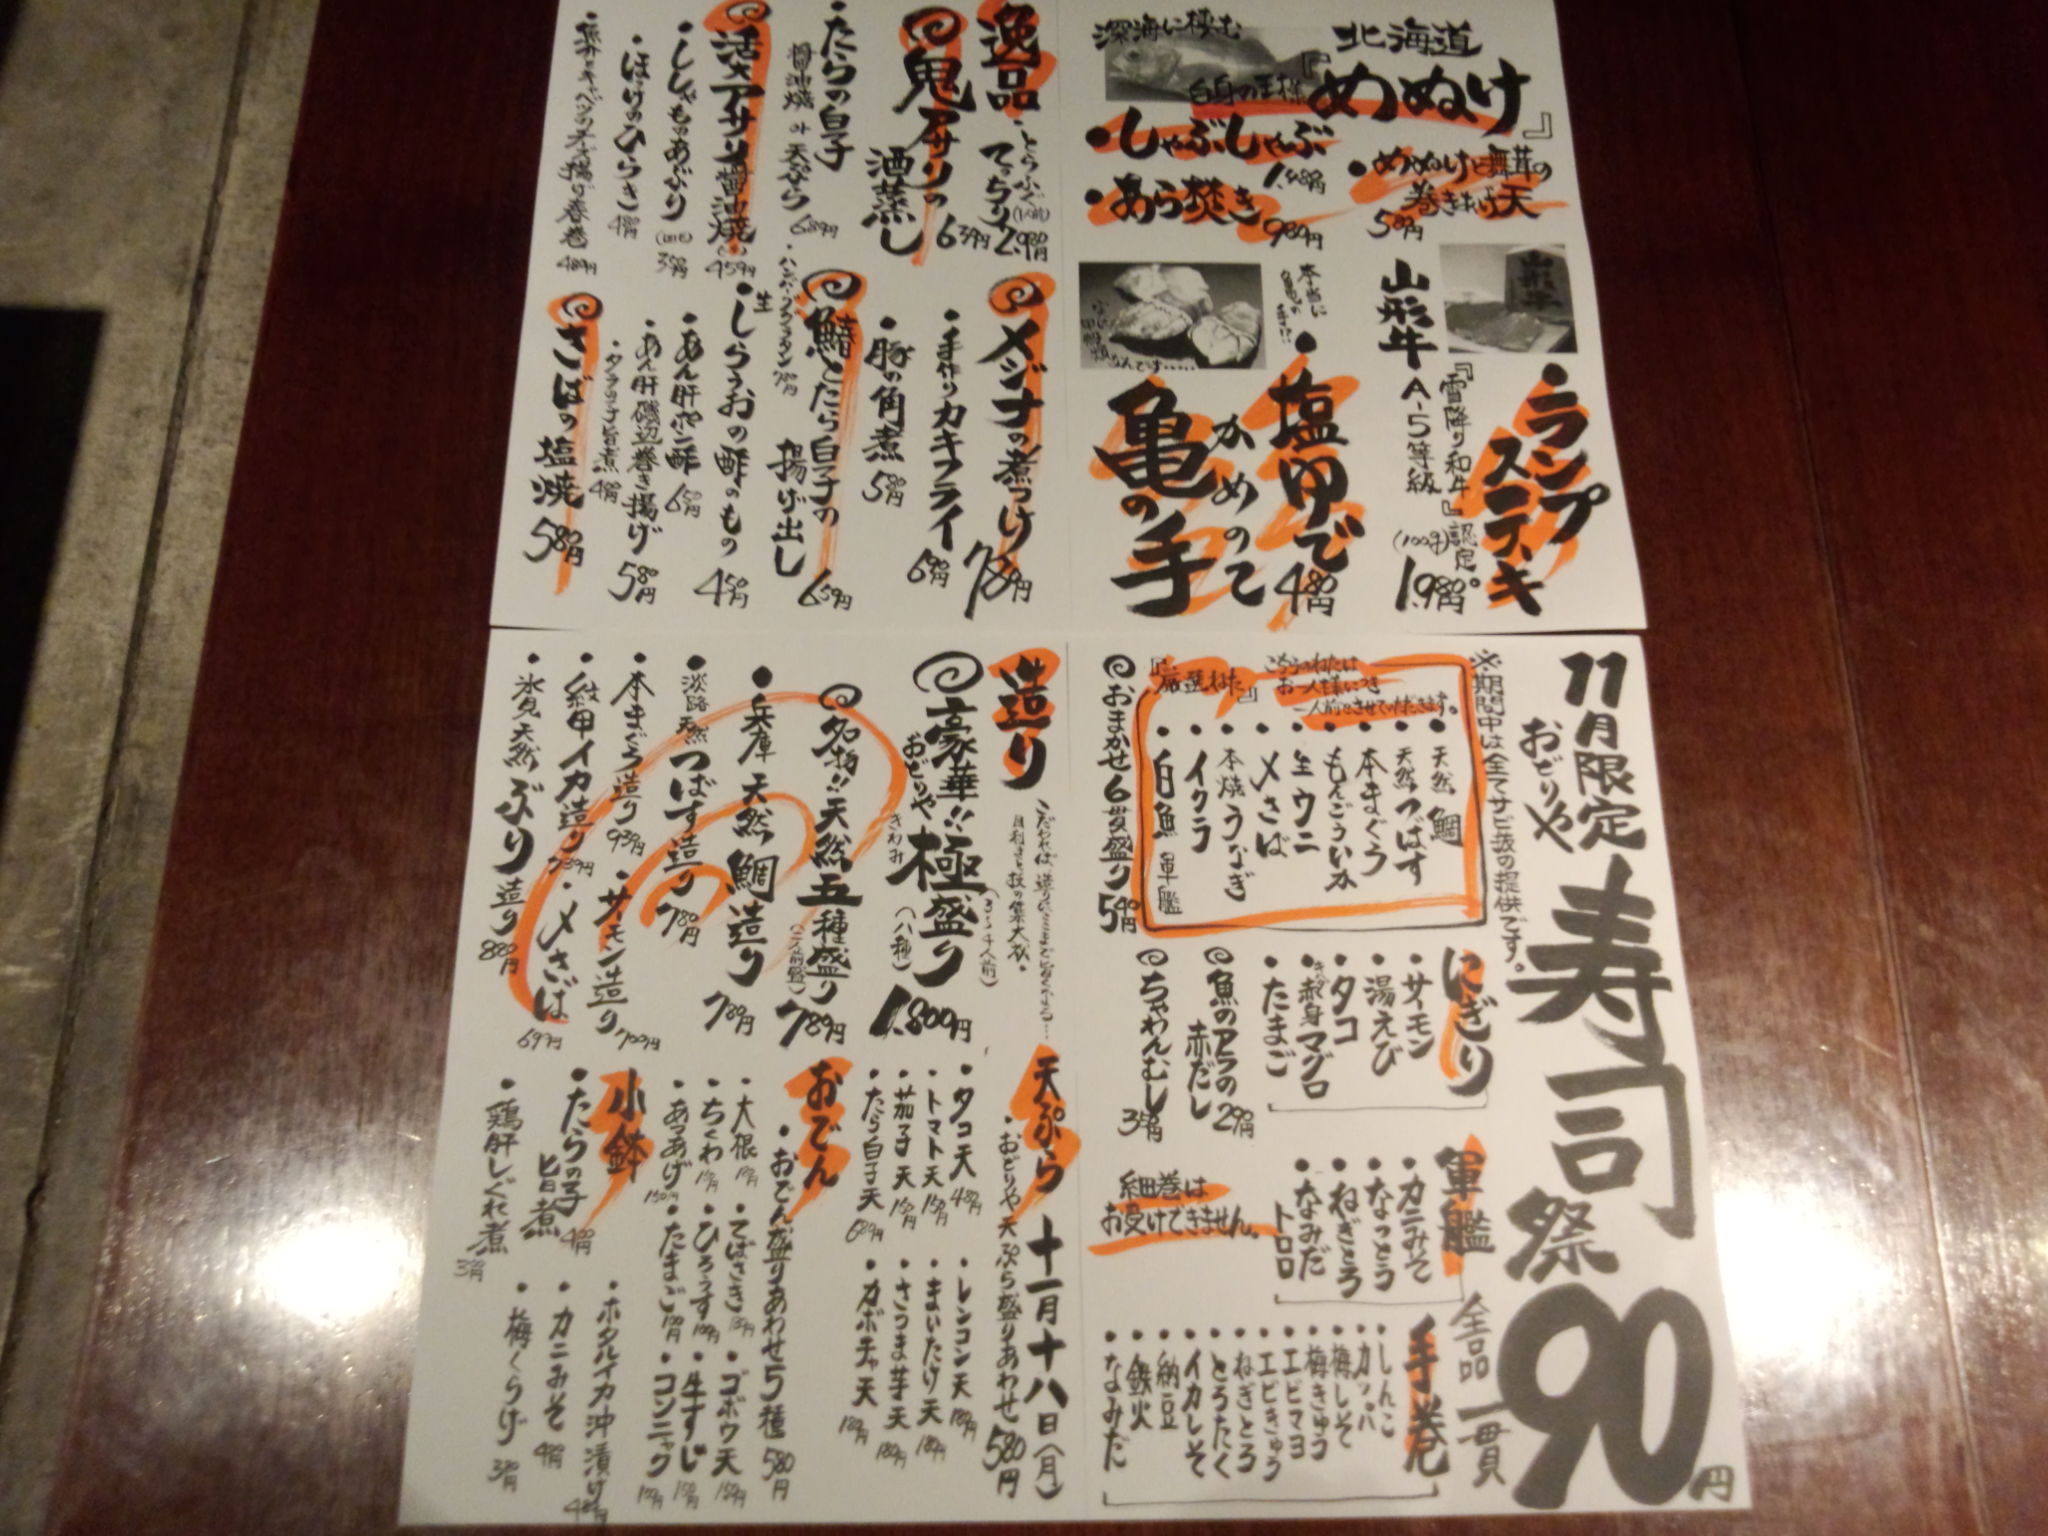 北海道
『めぬけ』
深海に棲む
白身の王様
・しゃぶしゃぶ
1.480円
・あら焚き
980円
・めぬけと舞茸の
巻き揚げ天
580円
山形牛
A-5等級
『雪降り和牛』認定
・ランプ
ステーキ
(100g)
1.980円
本当に
亀の
手!?
・塩ゆで
480円
かめのて
亀の手
逸品
・とらふぐ(1人前)
てっちり
2.980円
鬼アサリの
酒蒸し
639円
・たらの白子
醤油焼 or 天ぷら
689円
活大アサリ醤油焼
459円
・ししゃものあぶり
350円
・ほっけのひらき
480円
489円
メジナの煮つけ
789円
・手作りカキフライ
690円
・豚の角煮
580円
鯖とたら白子の
揚げ出し
659円
・ハンバーググラタン
780円
・生しらうおの酢のもの
450円
・あん肝ポン酢
650円
・あん肝磯辺巻き揚げ
580円
480円
さばの塩焼
580円
11月限定
おどりや
寿司祭
全品一貫
90円
※期間中は全てサビ抜の提供です。
『厳選ねた』
こちらのねたは
お一人を様につき
一人前とさせていただきます。
・天然鯛
・天然つばす
・本まぐろ
・もんごういか
・生ウニ
・〆さば
・本焼うなぎ
・イクラ
・白魚軍艦
おまかせ6貫盛り
540円
にぎり
・サーモン
・湯えび
・タコ
・赤身マグロ
・たまご
魚のアラの
赤だし
290円
ちゃわんむし
350円
軍艦
・カニみそ
・なっとう
・ねぎとろ
・なみだ
トロ
細巻は
お受けできません。
手巻
・しんこ
・カッパ
・梅しそ
・梅きゅう
・エビマヨ
・エビきゅう
・ねぎとろ
・とろたく
・イカしそ
・納豆
・鉄火
・なみだ
造り
豪華!!
おどりや極盛り
きわみ
(八種)
(3〜4人前)
1.800円
名物!!天然五種盛り
(二人前位)
789円
・兵庫 天然鯛造り
789円
・淡路天然つばす造り
780円
・本まぐろ造り
939円
・サーモン造り
700円
・紋甲イカ造り
739円
・〆さば
697円
・氷見天然ぶり造り
880円
天ぷら
十一月十八日(月)
・おどりや天ぷら盛りあわせ
580円
・タコ天
480円
・トマト天
150円
・茄子天
150円
・たら白子天
689円
・レンコン天
180円
・まいたけ天
180円
・さつま芋天
180円
・カボチャ天
180円
おでん
・おでん盛りあわせ5種
580円
・大根
・ちくわ
・あつあげ
150円
・てばさき
・ひろうす
・たまご
100円
・ゴボウ天
150円
・牛すじ
150円
・コンニャク
100円
小鉢
・たらの子
旨煮
480円
・鶏肝しぐれ煮
・ホタルイカ沖漬け
・カニみそ
480円
・梅くらげ